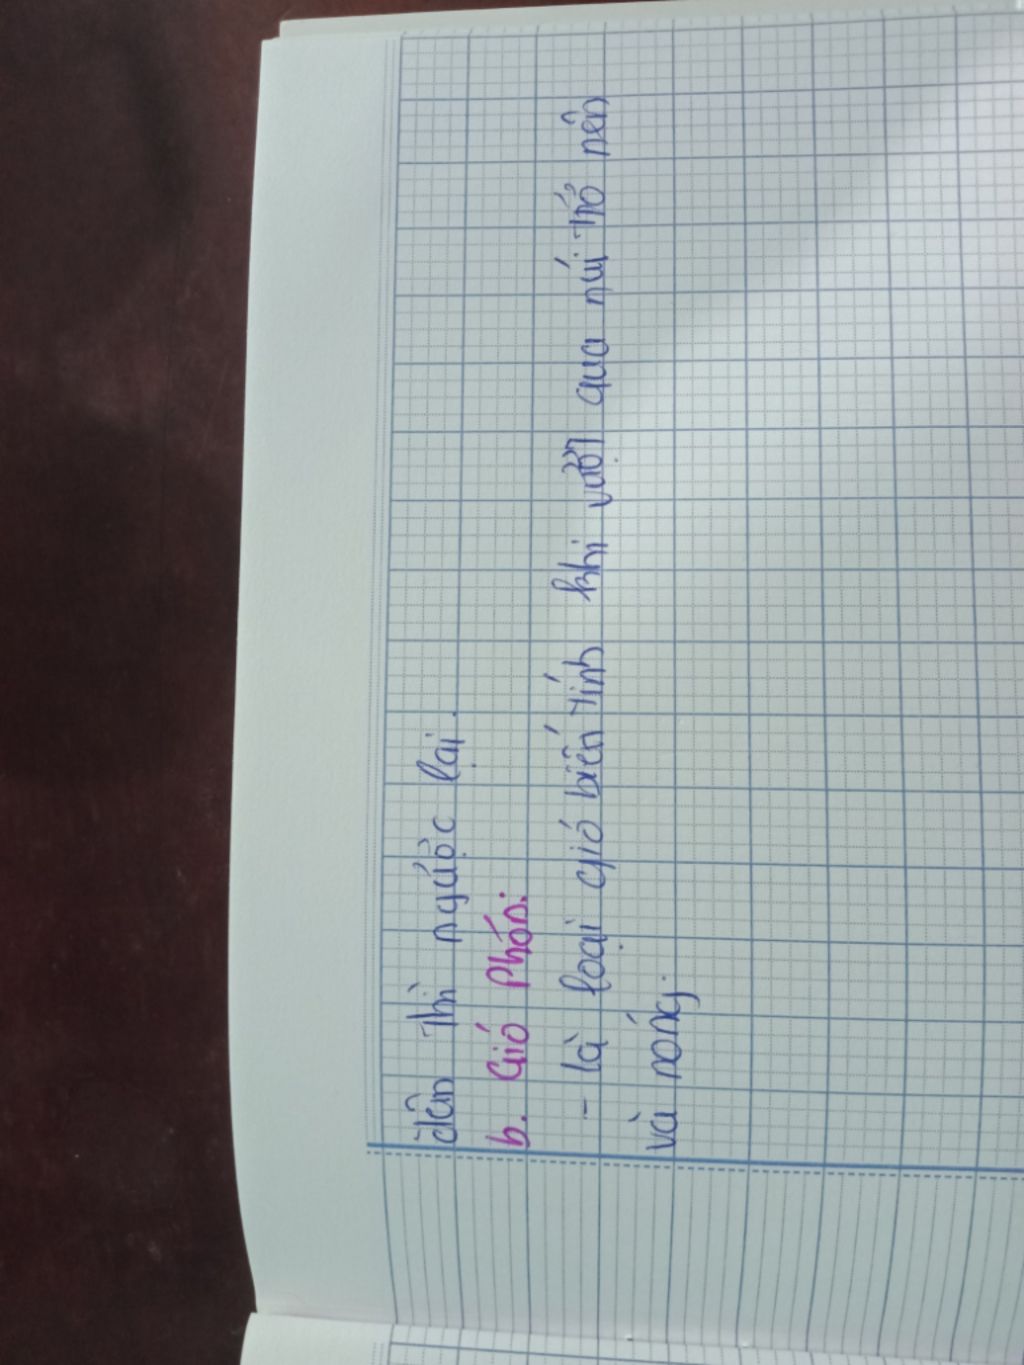 đêm thì ngược lại.
b. Gió Phơn:
- là loại gió biến tính khi vượt qua núi trở nên
và nóng.